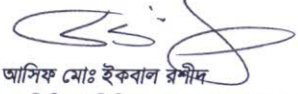 আসিফ মোঃ ইকবাল রশীদ